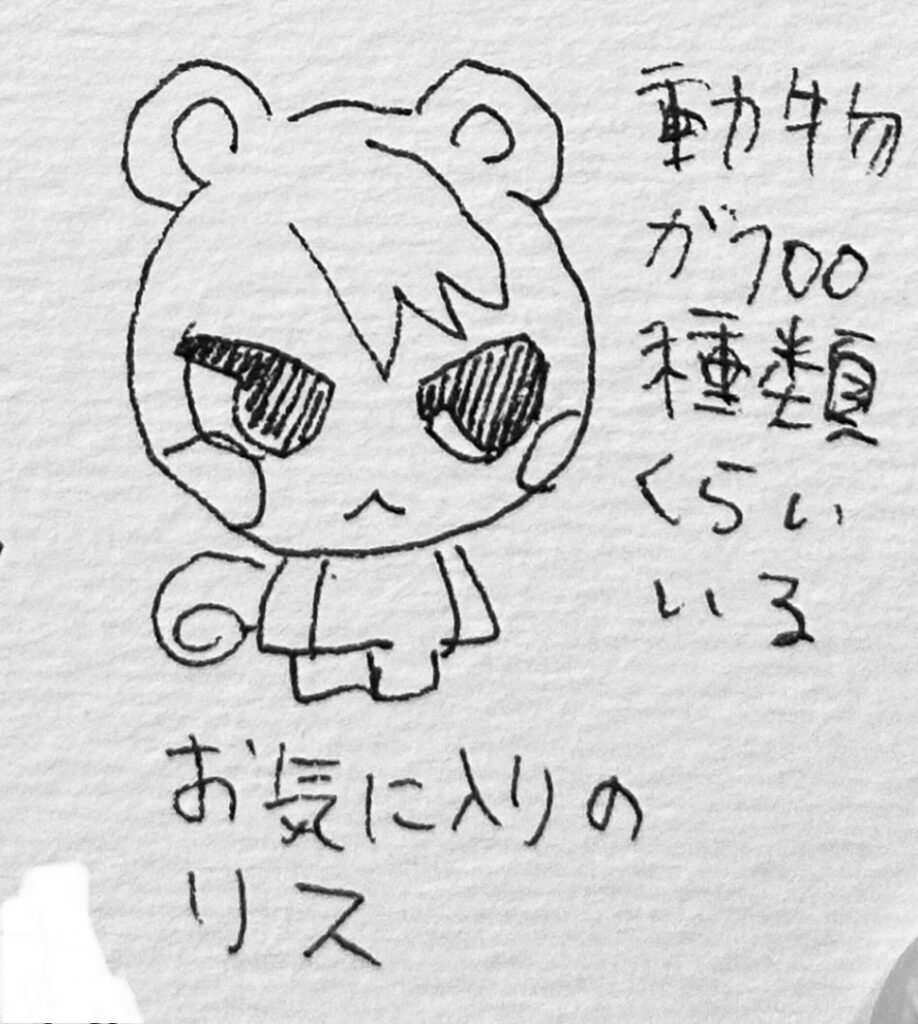 動物
が700
種類
くらい
いる
お気に入りの
リス